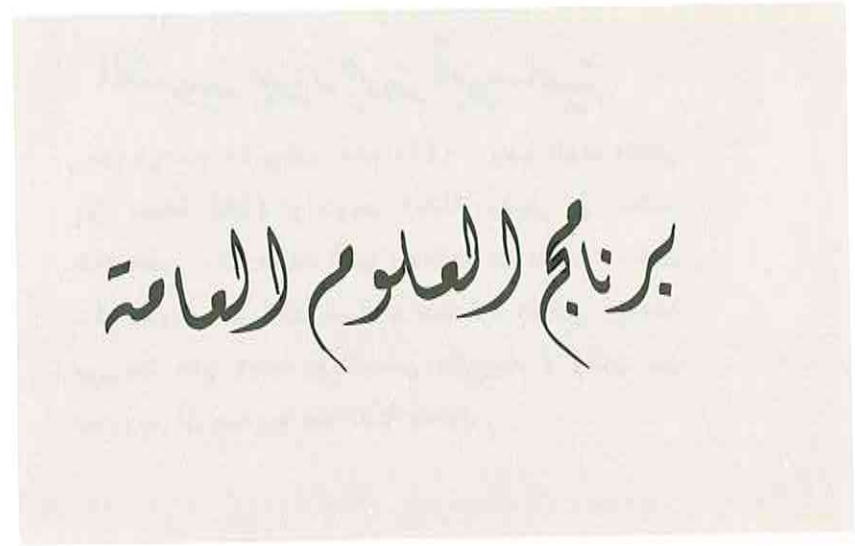 برنامج العلوم العامة